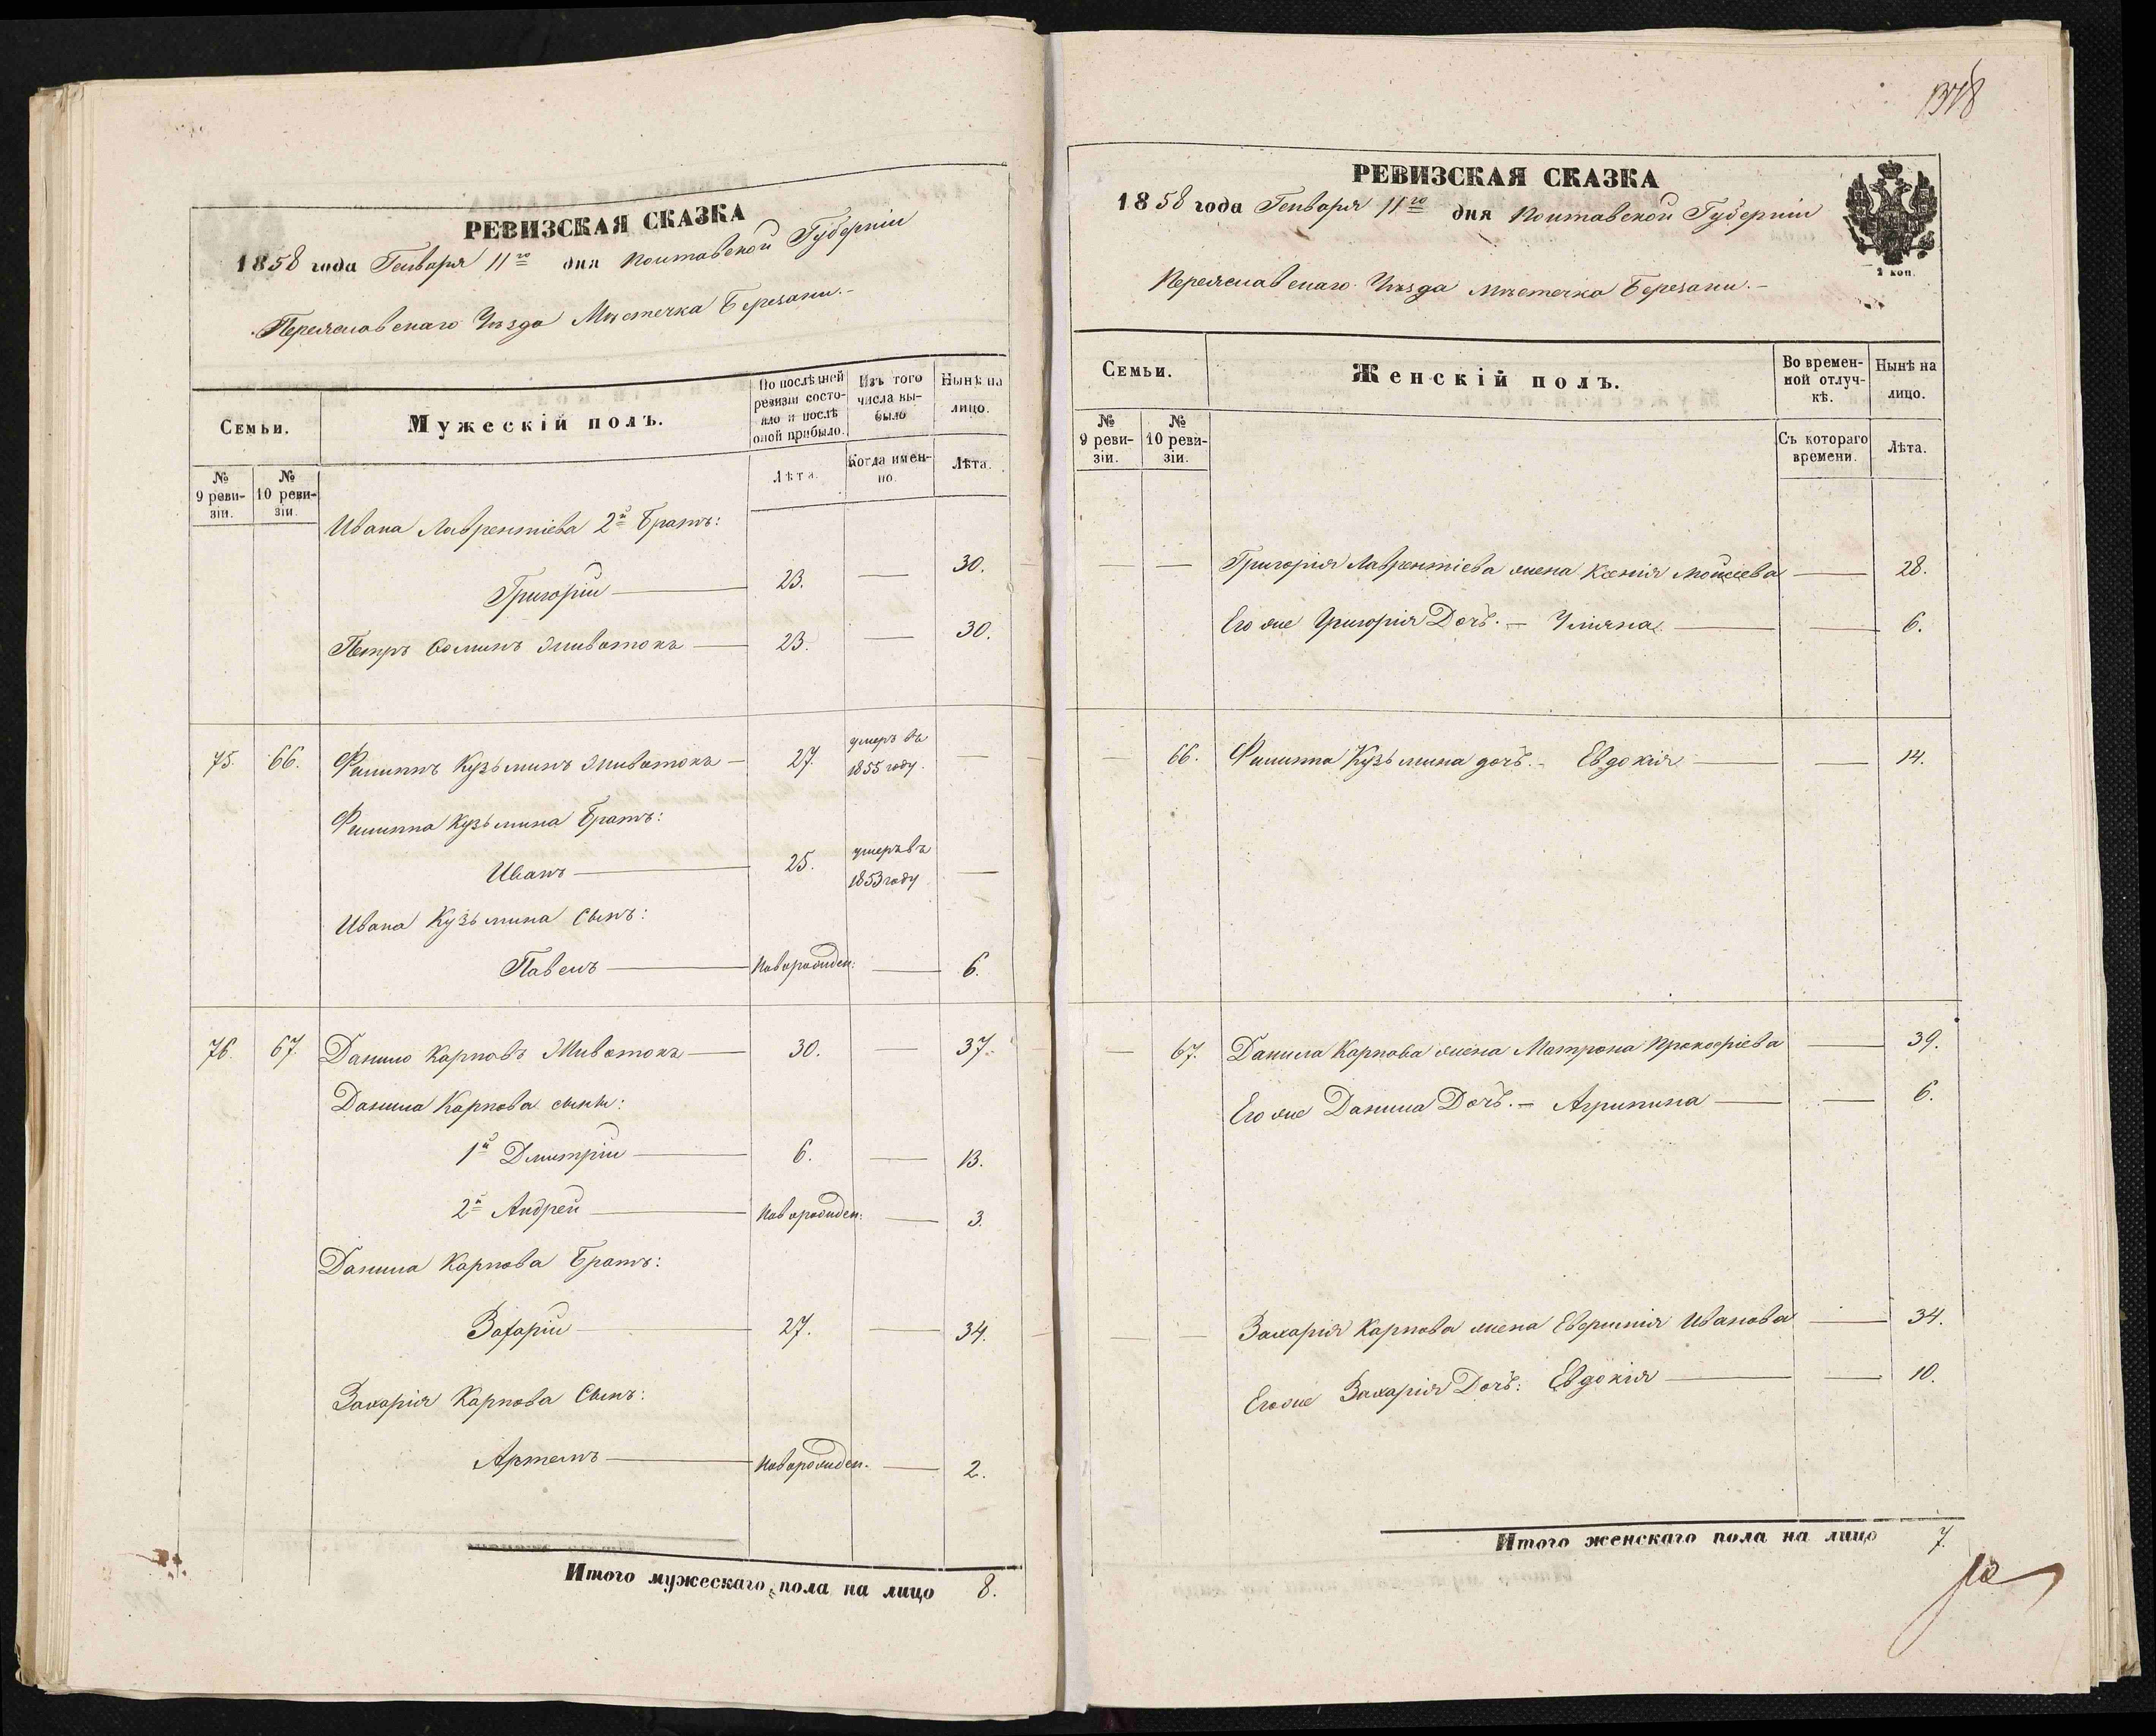 РЕВИЗСКАЯ СКАЗКА
1858 года Генваря 11го дня Полтавской Губерніи
Переяславскаго Уѣзда Мѣстечка Березани.-
Семьи.
Мужескій полъ.
По послѣдней ревизіи состояло и послѣ оной прибыло.
Изъ того числа выбыло
Нынѣ на лицо.
№ 9 ревизіи.
№ 10 ревизіи.
Лѣта.
Когда именно.
Лѣта.
Ивана Лаврентіева 2й Братъ:
Григорій — 23. — 30.
Петръ Фоминъ Животокъ — 23. — 30.
75. 66. Филиппъ Кузьминъ Животокъ — 27. умеръ въ 1855 году. —
Филиппа Кузьмина Братъ:
Иванъ — 25. умеръ въ 1853 году —
Ивана Кузьмина Сынъ:
Павелъ — Новорожден: — 6.
76. 67. Данило Карповъ Животокъ — 30. — 37.
Данила Карпова сыны:
1й Дмитрій — 6. — 13.
2й Андрей — Новорожден: — 3.
Данила Карпова Братъ:
Захарій — 27. — 34.
Захарія Карпова Сынъ:
Артемъ — Новорожден. — 2.
Итого мужескаго пола на лицо 8.
1378
РЕВИЗСКАЯ СКАЗКА
1858 года Генваря 11го дня Полтавской Губерніи
2 коп.
Переяславскаго Уѣзда мѣстечка Березани.-
Семьи.
Женскій полъ.
Во временной отлучкѣ.
Нынѣ на лицо.
№ 9 ревизіи.
№ 10 ревизіи.
Съ котораго времени.
Лѣта.
— — Григорія Лаврентіева жена Ксенія Мойсеева — 28.
Его же Григорія Дочь.- Уліяна — — 6.
— 66. Филиппа Кузьмина дочь.- Евдокія — — 14.
— 67. Данила Карпова жена Матрона Прокофіева — 39.
Его же Данила Дочь.- Агрипина — — 6.
— — Захарія Карпова жена Евфимія Иванова — 34.
Его же Захарія Дочь: Евдокія — — 10.
Итого женскаго пола на лицо 7.